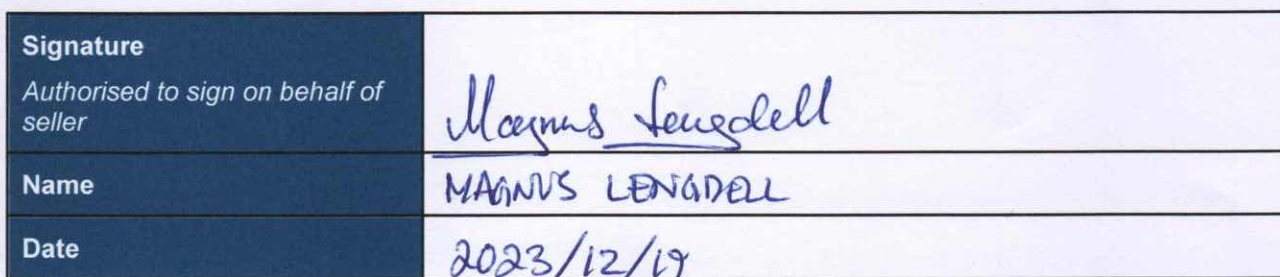 Signature
Authorised to sign on behalf of
seller
Magnus Lengdell
Name
MAGNUS LENGDELL
Date
2023/12/19